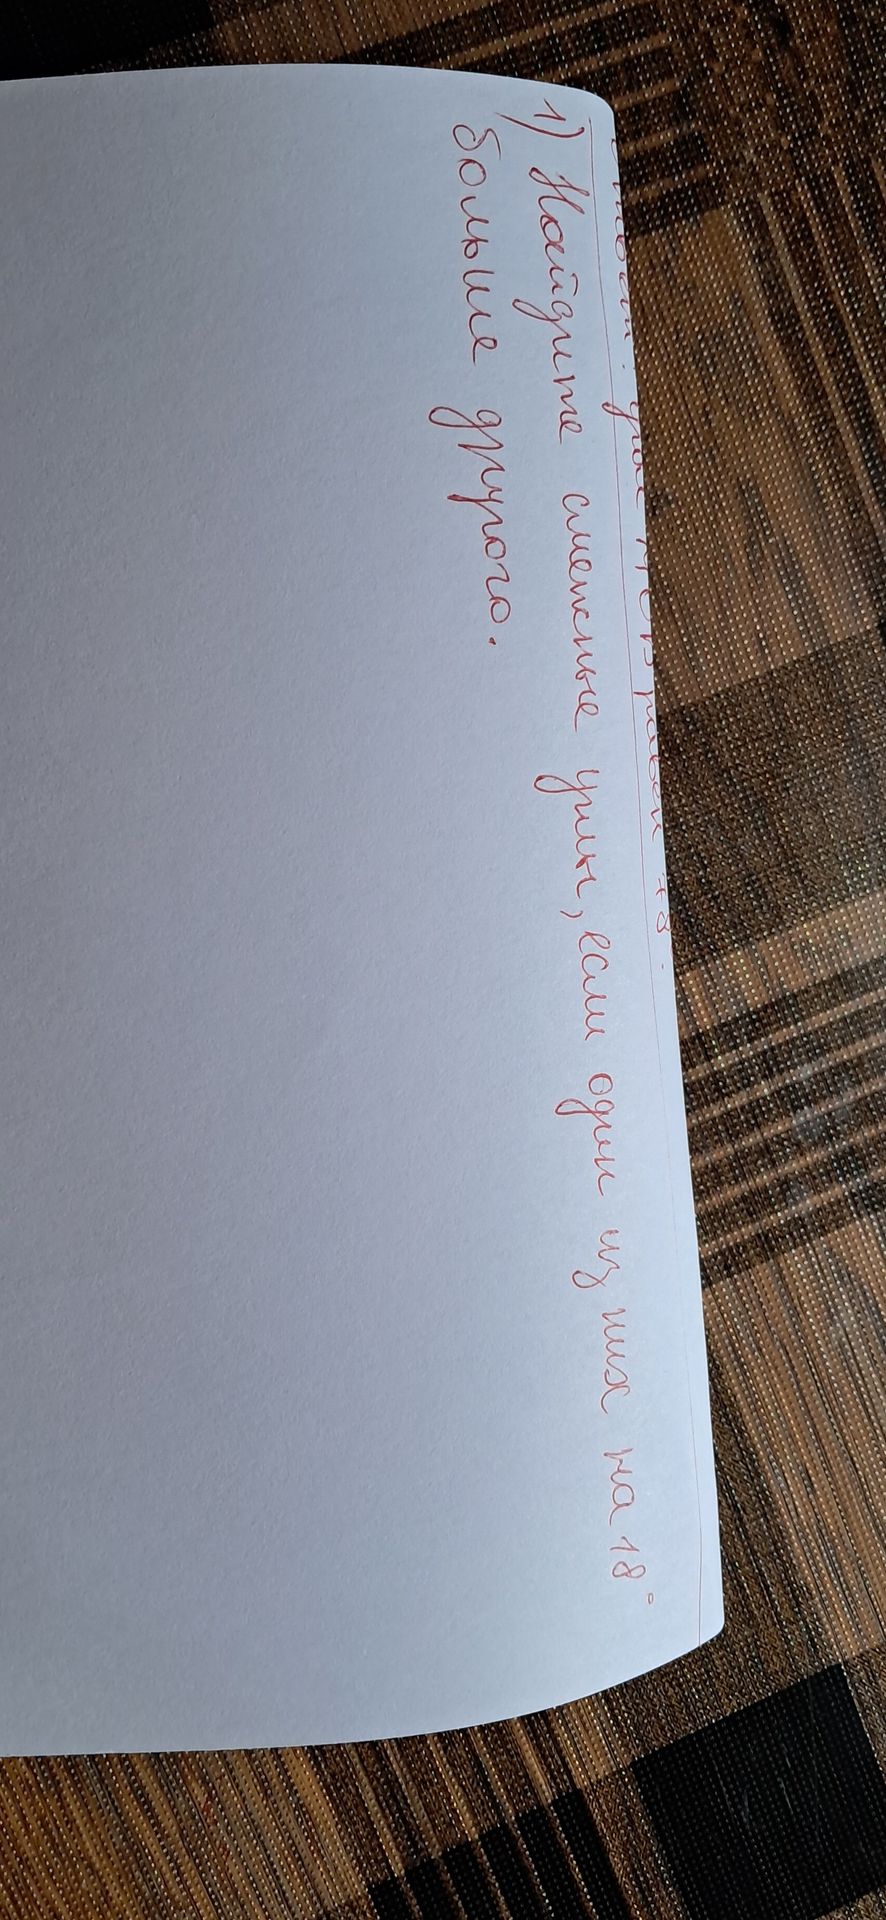 Ответ: угол МСВ равен 78°.
1) Найдите смежные углы, если один из них на 18°
больше другого.